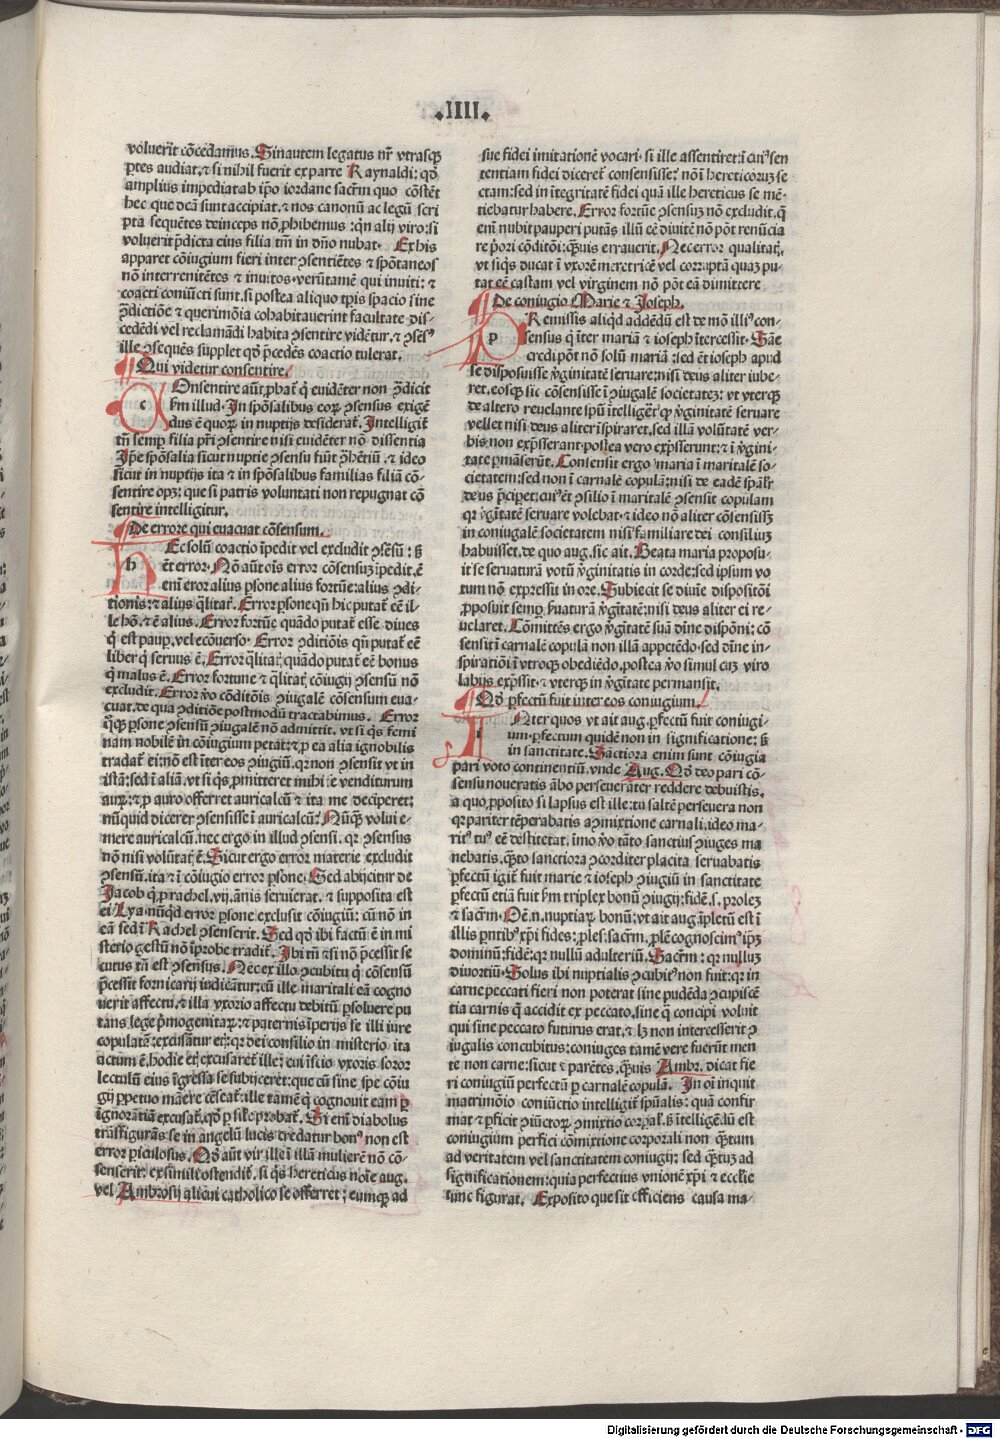 .IIII.
voluerit cōcedamus. Sinautem legatus nr̄ vtrasq̨
ꝑtes audiat.⁊ si nihil fuerit ex parte Raynaldi: qđ
amplius impediat ab ip̄o iordane sacr̄m quo cōstēt
hec que dcā sunt accipiat.⁊ nos canonū ac legū scri
pta sequētes deinceps nō ꝓhibemus: qn̄ alij viro: si
voluerit p̄dicta eius filia tm̄ in dn̄o nubat. Ex his
apparet cōiugium fieri inter ꝯsentiētes ⁊ spōtaneos
nō inter renitētes ⁊ inuitos. verūtamē qui inuiti: ⁊
coacti coniūcti sunt. si postea aliquo tꝑis spacio sine
ꝯdictiōe ⁊ querimōia cohabitauerint facultate dis⸗
cedēdi vel reclamādi habita ꝯsentire vidētur. ⁊ ꝯsēsꝰ
ille ꝯsequēs supplet qđ p̄cedēs coactio tulerat.
Qui videtur consentire.
Onsentire aūt ꝓbat̄ q̇ euidēter non ꝯdicit
c km̄ illud. In spōsalibus eoꝝ ꝯsensus exigē
dus ē quoꝝ in nuptijs desiderat̄. Intelligit̄
tn̄ semꝑ filia pr̄i ꝯsentire nisi euidēter nō dissentia
Ip̄e spōsalia sicut nuptie ꝯsensu fiūt ꝯhētiū. ⁊ ideo
sicut in nuptijs ita ⁊ in spōsalibus familias filiā cō⸗
sentire opꝫ: que si patris voluntati non repugnat cō
sentire intelligitur.
De errore qui euacuat cōsensum.
Ec solū coactio īpedit vel excludit ꝯsēsū: sꝫ
h ēt error. Nō aūt ois error cōsensuꝫ īpedit. ē
eni eror alius ꝑsone alius fortūe: alius ꝯdi⸗
tionis: ⁊ alius q̄litat̄. Error ꝑsone qn̄ hic putat̄ eē il⸗
le hō. ⁊ ē alius. Error fortūe quādo putat̄ esse diues
q̇ est pauꝑ. vel ecōuerso. Error ꝯditiōis qn̄ putat̄ eē
liber q̇ seruus ē. Error q̄litat̄ quādo putat̄ eē bonus
q̇ malus ē. Error fortune ⁊ q̄litat̄ cōiugij ꝯsensū nō
excludit. Error v̄o cōditiōis ꝯiugalē cōsensum eua⸗
cuat. de qua ꝯditiōe postmodū tractabimus. Error
q̊q̨ ꝑsone ꝯsensū ꝯiugalē nō admittit. vt si q̇s femi
nam nobilē in cōiugium petat: ⁊ ꝓ ea alia ignobilis
tradat̄ ei: nō est īter eos ꝯiugiū. qr non ꝯsensit vt in
istā: sed ī aliā. vt si q̇s ꝓmitteret mihi se venditurum
auꝝ: ⁊ ꝓ auro offerret auricalcū ⁊ ita me deciperet:
nūquid dicerer ꝯsensisse ī auricalcū? Nūq̄ꝫ volui e⸗
mere auricalcū. nec ergo in illud ꝯsensi. qr ꝯsensus
nō nisi volūtat̄ ē. Sicut ergo error materie excludit
ꝯsensū. ita ⁊ ī cōiugio error ꝑsone. Sed abijcitur de
Jacob q̇ ꝓ rachel. vij. ānis seruierat. ⁊ supposita est
ei Lya nūq̇d error ꝑsone exclusit cōiugiū: cū nō in
eā sed ī Rachel ꝯsenserit. Sed qđ ibi factū ē in mi
sterio gestū nō īprobe tradit̄. Ibi tn̄ ⁊ si nō p̄cessit se
cutus tn̄ est ꝯsensus. Nec ex illo ꝯcubitu q̇ cōsensū
p̄cessit fornicarij iudicātur: cū ille maritali eā cogno
uerit affectu. ⁊ illa vxorio affectu debitū ꝑsoluere pu
tans lege p̄mogenitaꝝ: ⁊ paternis īperijs se illi iure
copulatā: excusātur et̄: qr dei consilio in misterio ita
actum ē. hodie et̄ excusaret̄ ille: cui īscio vxoris soror
lectulū eius īgressa se subijceret: que cū sine spe cōiu
gij ꝑpetuo manere cēseat̄: ille tamē q̇ cognouit eam ꝑ
ignorātiā excusat̄. qđ ꝑ sile ꝓbat̄. Si eni diabolus
trāsfigurās se in angelū lucis credatur bonꝰ non est
error ꝑiculosus. Qđ aūt vir ille ī illā mulierē nō cō⸗
senserit: ex simili ostendit̄. si q̇s hereticus noīe aug.
vel Ambrosij alicui catholico se offerret: eumq̨ ad
sue fidei imitationē vocari. si ille assentiret: ī cuiꝰ sen
tentiam fidei diceret̄ consensisse? nō ī hereticoruꝫ se
ctam: sed in ītegritatē fidei quā ille hereticus se mē⸗
tiebatur habere. Error fortūe ꝯsensuꝫ nō excludit. q̇
eni nubit pauperi putās illū eē diuitē nō pōt renūcia
re p̄ori cōditōi: q̄uis errauerit. Nec error qualitat̄.
vt si q̇s ducat ī vxorē meretricē vel corruptā quaꝫ pu⸗
tat eē castam vel virginem nō pōt eā dimittere
De coniugio Marie ⁊ Joseph.
Remissis aliq̇d addēdū est de mō illiꝰ con⸗
p sensus q̇ īter mariā ⁊ ioseph ītercessit. Sāe
credi pōt nō solū mariā: sed ēt ioseph apud
se disposuisse v̇ginitatē seruare: nisi deus aliter iube⸗
ret. eosq̨ sic cōsensisse ī ꝯiugalē societateꝫ: vt vterq̨
de altero reuelante spū ītelligēt̄ q̇ v̇ginitatē seruare
vellet nisi deus aliter īspiraret. sed illā volūtatē ver⸗
bis non exp̄sserant. postea vero exp̄sserunt: ⁊ ī v̇gini⸗
tate ꝑmāserūt. Consensit ergo maria ī maritalē so⸗
cietatem: sed non ī carnalē copulā: nisi de eadē spālit̄
deus p̄ciꝑet: cuiꝰ ēt ꝯsilio ī maritalē ꝯsensit copulam
qr v̇gītatē seruare volebat. ⁊ ideo nō aliter cōsensissꝫ
in coniugalē societatem nisi familiare dei consiliuꝫ
habuisset. de quo aug. sic ait. Beata maria proposu⸗
it se seruaturā votū v̇ginitatis in corde: sed ipsum vo
tum nō expressit in ore. Subiecit se diuīe dispositōi
ꝓposuit semꝑ ꝯuaturā v̇gītatē: nisi deus aliter ei re⸗
uelaret. Cōmittēs ergo v̇gītatē suā dīne dispōni: cō
sensit ī carnalē copulā non illā appetēdo. sed dīne in⸗
spiratiōi ī vtroq̨ obediēdo. postea v̄o simul cuꝫ viro
labijs exp̄ssit. ⁊ vterq̨ in v̇gītate permansit.
Qđ ꝑfectū fuit inter eos coniugium.
Nter quos vt ait aug. ꝑfectū fuit coniugi⸗
i um. ꝑfectum quidē non in significatione: sꝫ
in sanctitate. Sāctiora enim sunt cōiugia
pari voto continentiū. vnde Aug. Qđ deo pari cō⸗
sensu noueratis ābo perseuerāter reddere debuistis.
a quo ꝓposito si lapsus est ille: tu saltē persevera non
qr pariter tēperabatis a ꝯmixtione carnali. ideo ma⸗
ritꝰ tuꝰ eē destitetat. īmo v̄o tāto sanctius ꝯiuges ma
nebatis. q̄sto sanctiora ꝯcorditer placita seruabatis
ꝑfectū igit̄ fuit marie ⁊ ioseph ꝯiugiū in sanctitate
ꝑfectū etiā fuit km̄ triplex bonū ꝯiugij: fidē. s. ꝓleꝫ
⁊ sacr̄m. Oē. n. nuptiaꝝ bonū: vt ait aug. īpletū est ī
illis ꝑntibꝰ xp̄i fides: ꝓles: sacr̄m. ꝓlē cognoscimꝰ ip̄ꝫ
dominū: fidē: qr nullū adulteriū. Sacr̄m: qr nulluꝫ
diuortiū. Solus ibi nuptialis ꝯcubitꝰ non fuit: qr in
carne peccati fieri non poterat sine pudēda ꝯcupiscē
tia carnis q̄ accidit ex peccato. sine q̄ concipi voluit
qui sine peccato futurus erat. ⁊ lꝫ non intercesserit ꝯ
iugalis concubitus: coniuges tamē vere fuerūt men
te non carne: sicut ⁊ parētes. q̄uis Ambr. dicat fie
ri coniugiū perfectū ꝑ carnalē copulā. In oi inquit
matrimōio coniūctio intelligit̄ spūalis: quā confir
mat ⁊ ꝑficit ꝯiūctoꝝ ꝯmixtio corꝑal̄. sꝫ ītelligēdū est
coniugium perfici cōmixtione corporali non q̄ꝫtum
ad veritatem vel sanctitatem coniugij: sed q̄ꝫtuꝫ ad
significationem: quia perfectius vnionē xp̄i ⁊ ecclīe
tunc figurat. Exposito que sit efficiens causa ma⸗
Digitalisierung gefördert durch die Deutsche Forschungsgemeinschaft - DFG